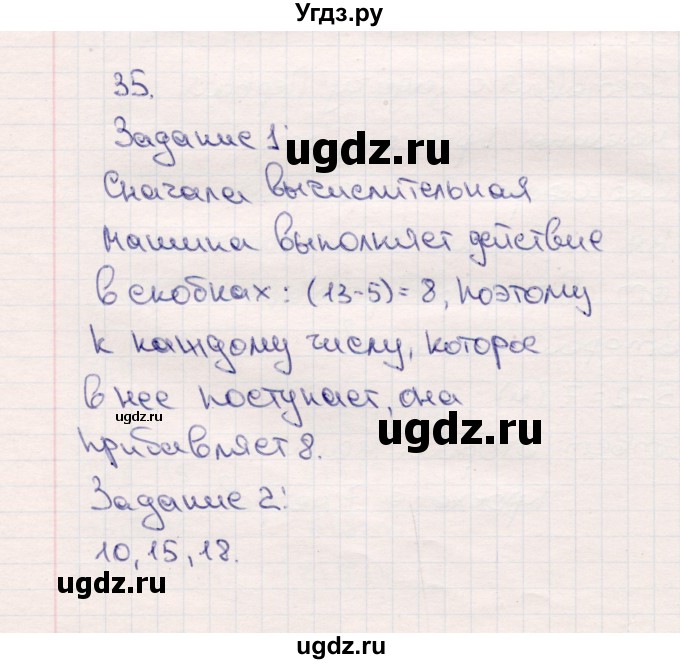 Угдз.ру
35.
Задание 1:
ugdz.ru
Сначала вычислительная
машина выполняет действие
в скобках: (13-5)=8, поэтому
к каждому числу, которое
в нее поступает, она
ugdz.ru
ugdz.ru
прибавляет 8.
Задание 2:
10, 15, 18.
ugdz.ru
ugdz.ru
ugdz.ru